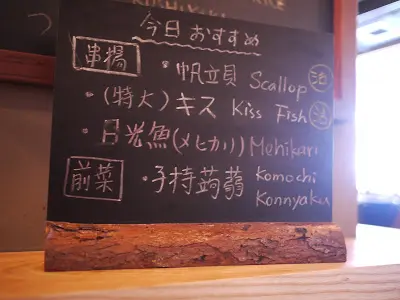 つ
今日おすすめ
串揚 ・帆立貝 Scallop
・(特大)キス Kiss Fish
・目光魚(メヒカリ) Mehikari
前菜 ・子持蒟蒻 Komochi
Konnyaku